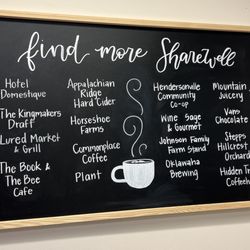 find more Sharewell
Hotel
Domestique
The Kingmakers
Draft
Lured Market
& Grill
The Book &
The Bee
Cafe
Appalachian
Ridge
Hard Cider
Horseshoe
Farms
Commonplace
Coffee
Plant
Hendersonville
Community
Co-op
Wine Sage
& Gourmet
Johnson Family
Farm Stand
Oklawaha
Brewing
Mountain
Juicery
Vans
Chocolate
Stepps
Hillcrest
Orchard
Hidden
Coffee